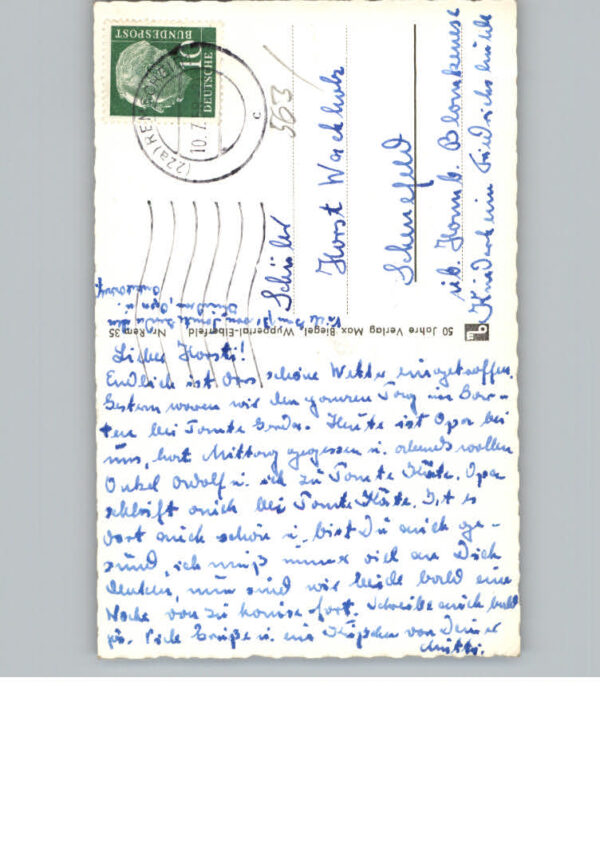 Lieber Horsti!
Endlich ist das schöne Wetter eingetroffen.
Gestern waren wir den ganzen Tag im Gar-
ten bei Tante Gerda. Heute ist Opa bei
uns, hat Mittag gegessen u. abends wollen
Onkel Adolf u. ich zu Tante Käte. Opa
schläft auch bei Tante Käte. Ist es
dort auch schön u. bist Du auch ge-
sund, ich muß immer viel an Dich
denken, nun sind wir beide bald eine
Woche von zu Hause fort. Schreibe auch bald
Viele Grüße u. ein Küßchen von Deiner
Mutti.
Viele Grüße von Tante Gerda
Opa u.
Schüler
Horst
Schenefeld
üb. Hamb. Blankenese
Kinderheim Friedrichshulde
563
DEUTSCHE
BUNDESPOST
10
(22a) REMSCHEID
10.7.
c
50 Jahre Verlag Max Biegel, Wuppertal-Elberfeld Nr. Rem 35